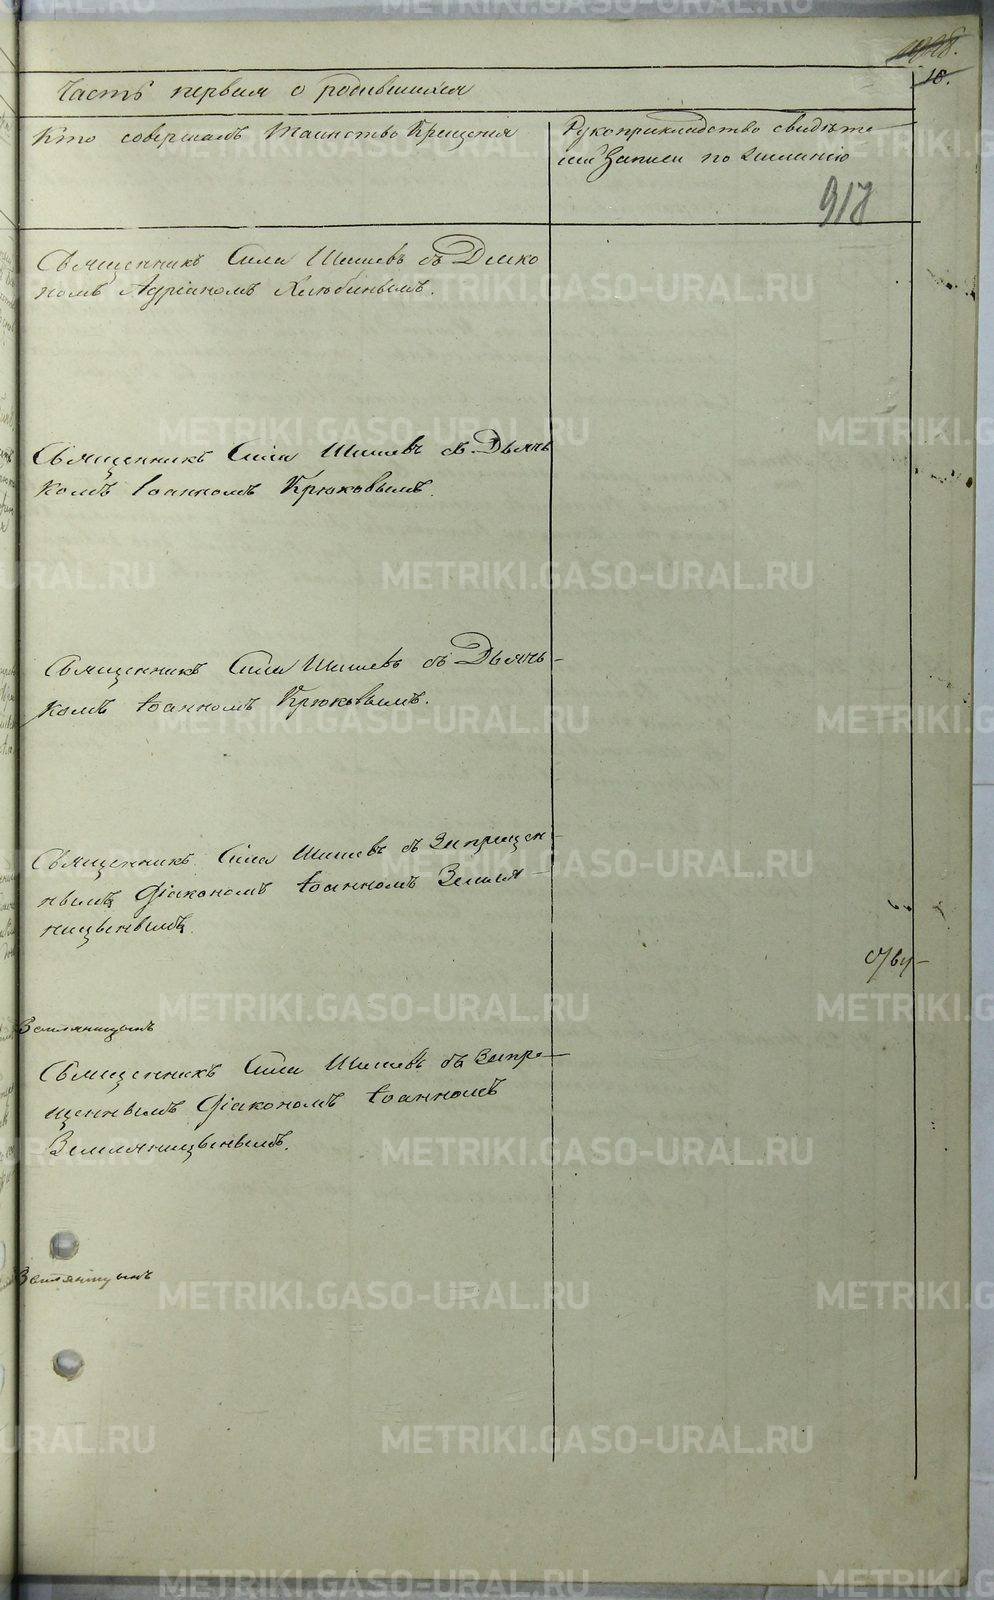 Часть первая о родившихся
10.
Кто совершалъ таинство Крещенія
Рукоприкладство свидѣте
лей записи по желанію
918
Священникъ Сила Шишевъ съ Диако
номъ Адріаномъ Хлюбинымъ.
Священникъ Сила Шишевъ съ Дьячь
комъ Іоанномъ Крюковымъ.
Священникъ Сила Шишевъ съ Дьячь-
комъ Іоанномъ Крюковымъ.
Священникъ Сила Шишевъ съ Запрещен-
нымъ Діакономъ Іоанномъ Земля-
ницынымъ.
Земляницынъ
Священникъ Сила Шишевъ съ Запре-
щеннымъ Діакономъ Іоанномъ
Земляницынымъ.
Земляницынъ
METRIKI.GASO-URAL.RU